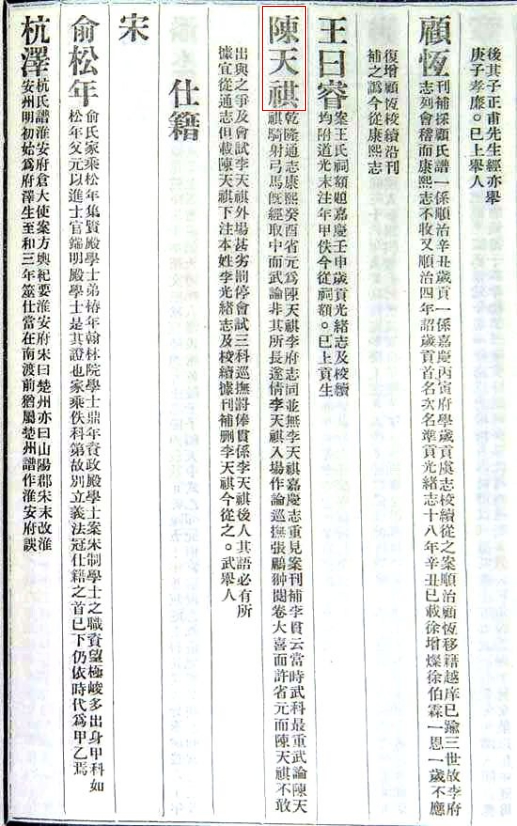 後其子正甫先生經亦舉
庚子孝廉。巳上舉人
顧恆
刊補採顧氏譜一係順治辛丑歲貢一係嘉慶丙寅府學歲貢虞志校續從之案順治顧恆移籍越庠已踰三世故李府
志列會稽而康熙志不收又順治四年詔歲貢首名次名準貢光緒志十八年辛丑巳載徐增燦徐伯霖一恩一歲不應
復增顧恆校續沿刊
補之譌今從康熙志
王曰睿
案王氏祠額題嘉慶壬申歲貢光緒志及校續
均附道光末注年甲佚今從祠額。巳上貢生
陳天祺
乾隆通志康熙癸酉省元爲陳天祺李府志同並無李天祺嘉慶志重見案刊補李貫云當時武科最重武論陳天
祺騎射弓馬旣經取中而武論非其所長遂倩李天祺入場作論巡撫張鵬翀閱卷大喜面許省元而陳天祺不敢
出與之爭及會試李天祺外場甚劣罰停會試三科巡撫罸俸貫係李天祺後人其語必有所
據宜從通志但載陳天祺下注本姓李光緒志及校續據刊補删李天祺今從之。武舉人
仕籍
宋
俞松年
俞氏家乘松年集賢殿學士弟椿年翰林院學士鼎年資政殿學士案宋制學士之職資望極峻多出身甲科如
松年父元以進士官端明殿學士是其證也家乘佚科第故別立義法冠仕籍之首巳下仍依時代爲甲乙焉
杭澤
杭氏譜淮安府倉大使案方輿紀要淮安府宋曰楚州亦曰山陽郡宋末改淮
安州明初始爲府澤生至和三年筮仕當在南渡前猶屬楚州譜作淮安府誤